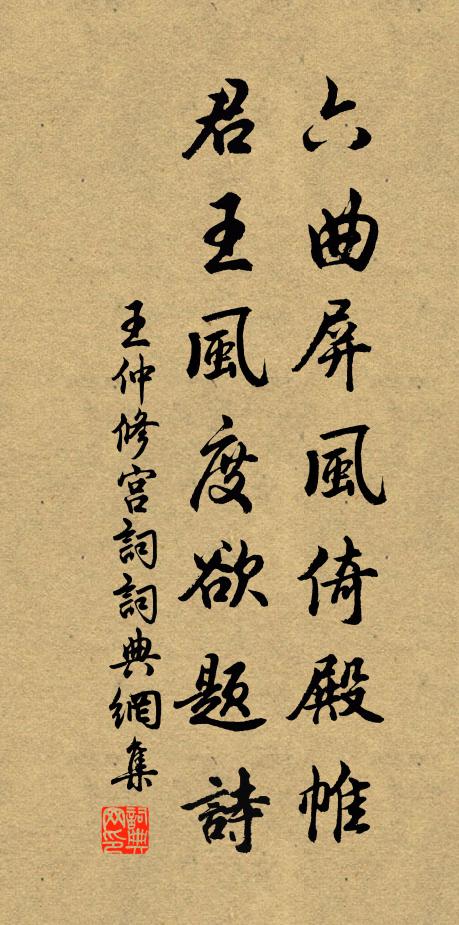 六曲屏風倚殿帷
君王風度欲題詩
王仲修宮詞詞典網集
詞典
网印